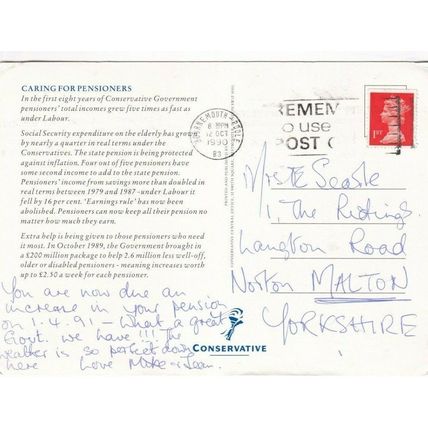 CARING FOR PENSIONERS
In the first eight years of Conservative Government
pensioners' total incomes grew five times as fast as
under Labour.
Social Security expenditure on the elderly has grown
by nearly a quarter in real terms under the
Conservatives. The state pension is being protected
against inflation. Four out of five pensioners have
some second income to add to the state pension.
Pensioners' income from savings more than doubled in
real terms between 1979 and 1987 - under Labour it
fell by 16 per cent. 'Earnings rule' has now been
abolished. Pensioners can now keep all their pension no
matter how much they earn.
Extra help is being given to those pensioners who
need it most. In October 1989, the Government brought in
a £200 million package to help 2.6 million less well-off,
older or disabled pensioners - meaning increases worth
up to £2.50 a week for each pensioner.
You are now due an
increase in your pension
on 1.4.91 - what a great
Govt. we have !!! The
weather is so perfect down
here Love Mike + Jean.
CONSERVATIVE
BOURNEMOUTH - POOLE
12 OCT
1990
REMEM
O use
POST C
1ST
Mrs T E Seastle
1, The Ridings
Langton Road
Norton MALTON
YORKSHIRE